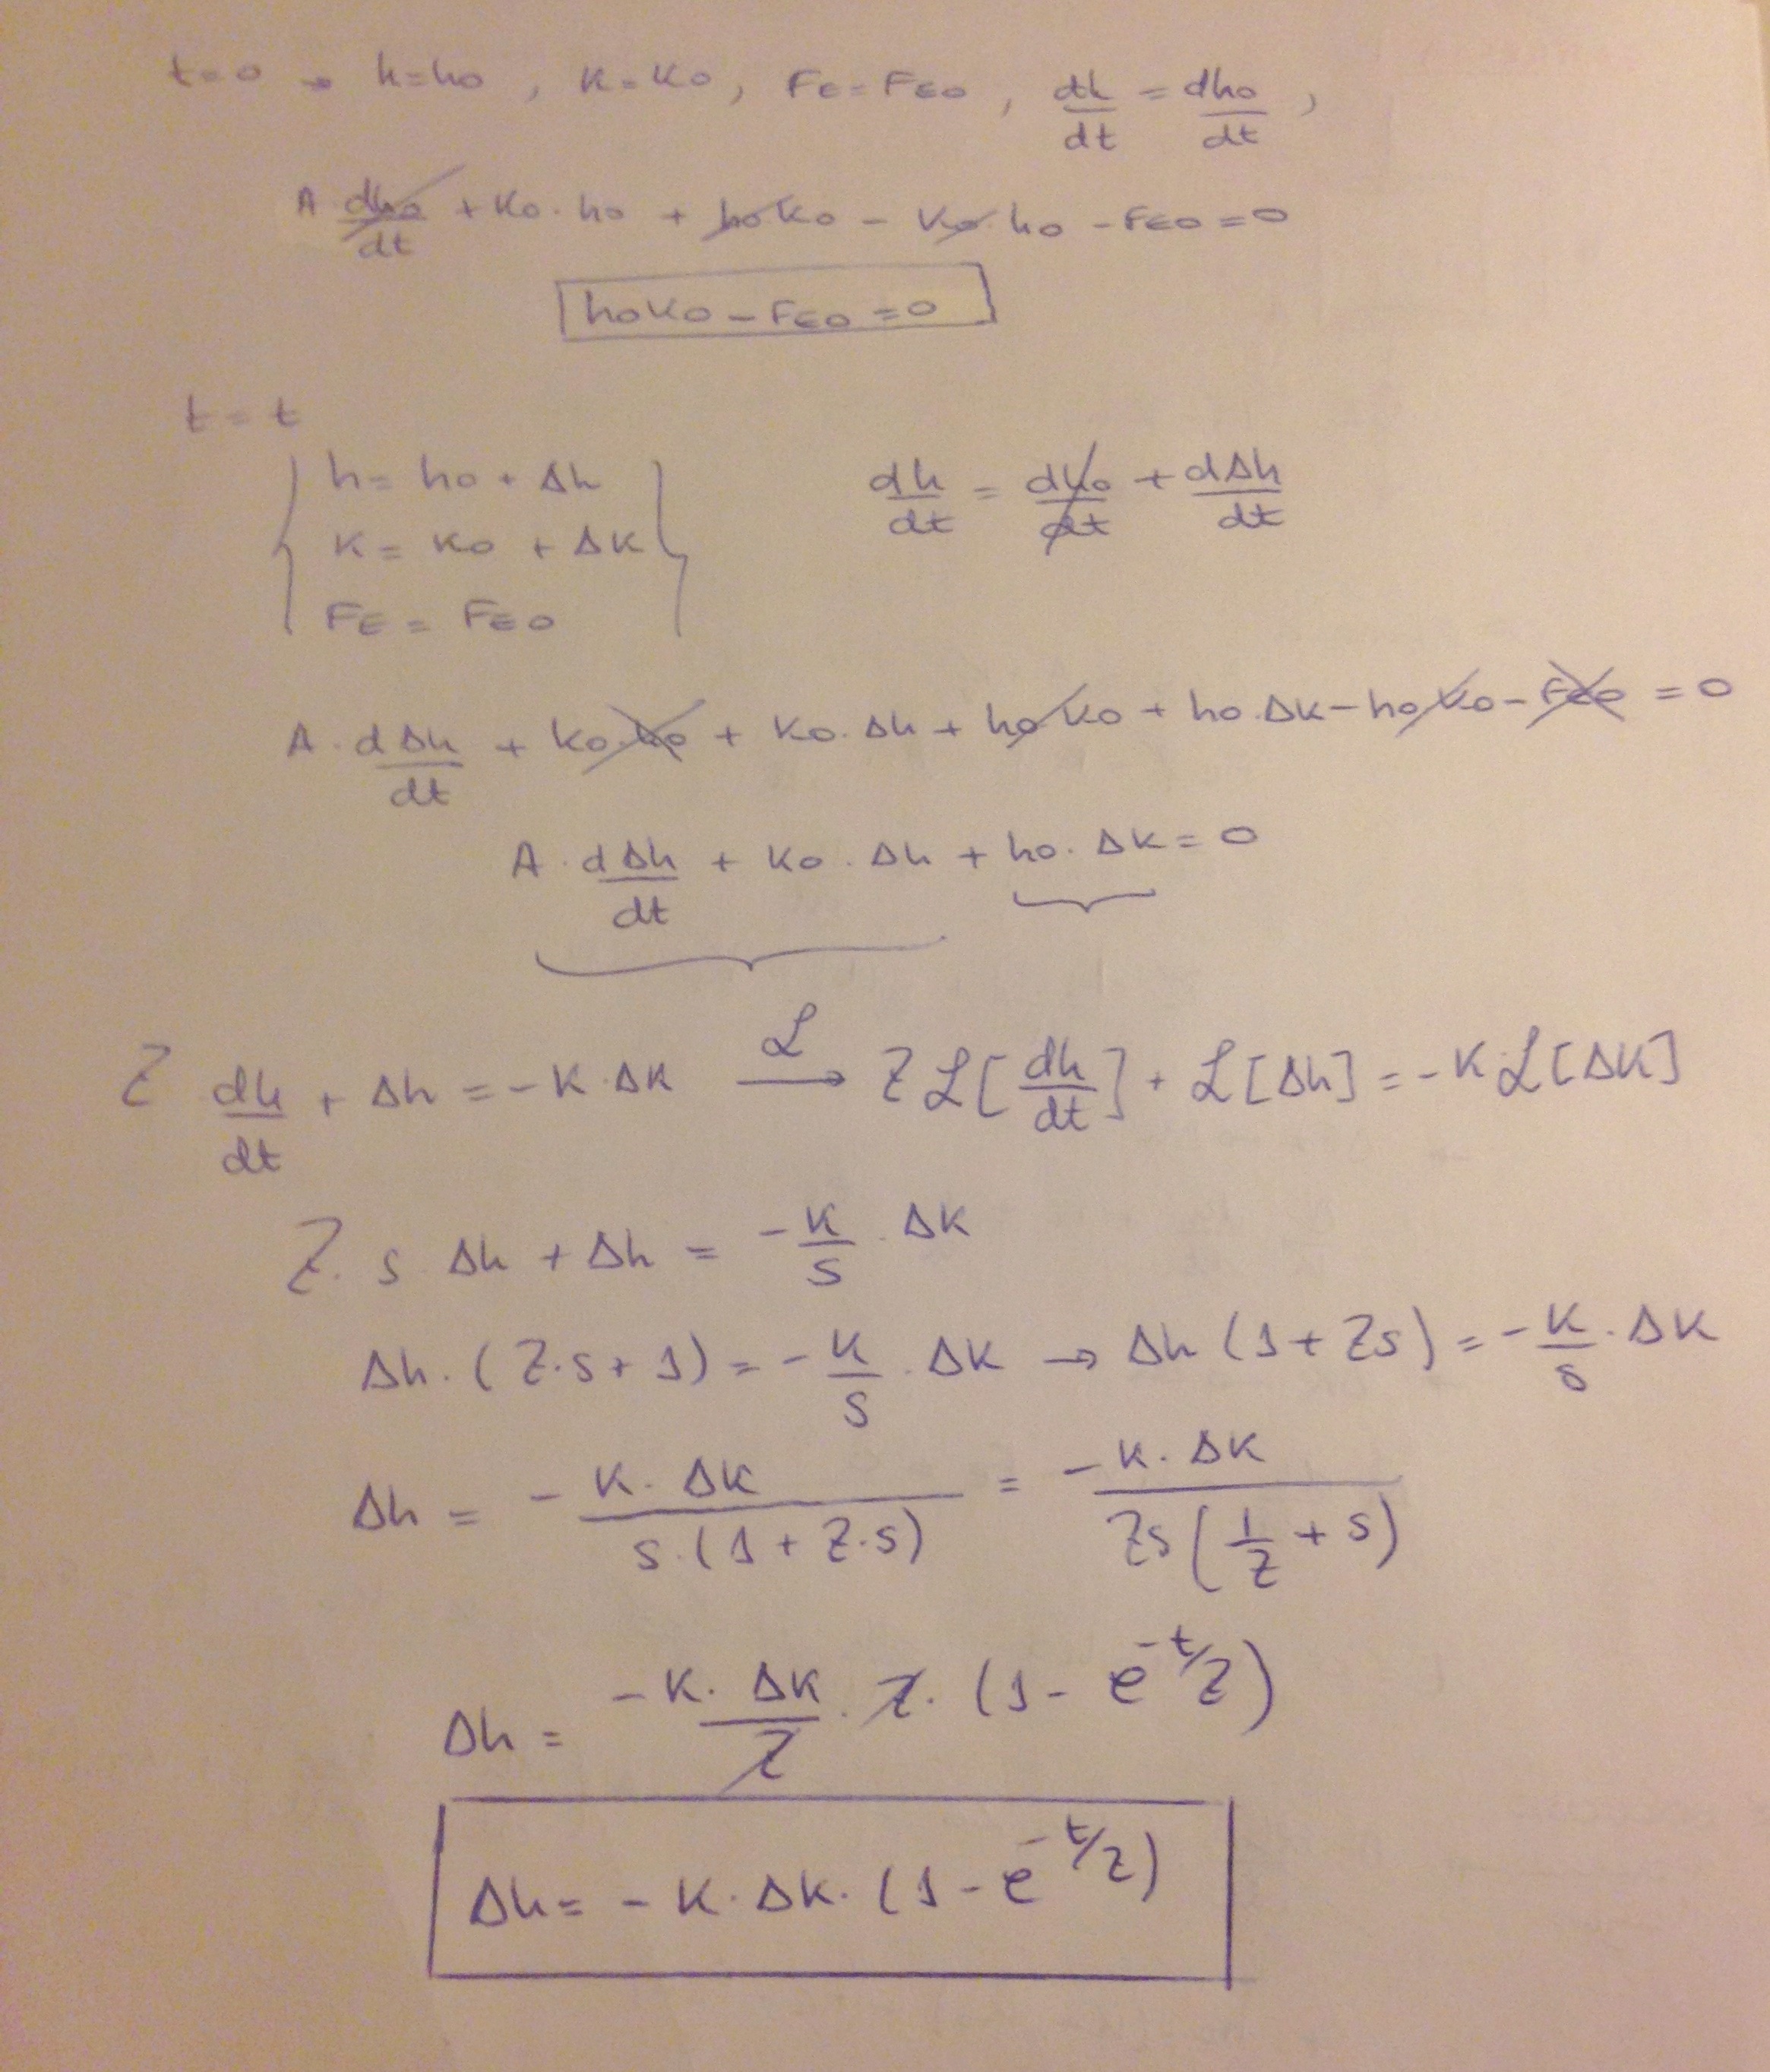 t=0 → h=h0 , K=K0 , FE=FE0 , dh/dt = dh0/dt ,
A · dh0/dt + K0 · h0 + h0K0 − K0 · h0 − FE0 = 0
h0K0 − FE0 = 0
t = t
h = h0 + Δh
K = K0 + ΔK
FE = FE0
dh/dt = dh0/dt + dΔh/dt
A · dΔh/dt + K0·h0 + K0·Δh + h0K0 + h0·ΔK − h0K0 − FE0 = 0
A · dΔh/dt + K0 · Δh + h0 · ΔK = 0
Z dh/dt + Δh = −K·ΔK —ℒ→ Zℒ[dh/dt] + ℒ[Δh] = −Kℒ[ΔK]
Z · s · Δh + Δh = −K/s · ΔK
Δh · (Z·s + 1) = −K/s · ΔK → Δh (1 + Zs) = −K/s · ΔK
Δh = − K · ΔK / s·(1 + Z·s) = −K · ΔK / Zs(1/Z + s)
Δh = −K · ΔK / Z · Z · (1 − e^−t/Z)
Δh = −K · ΔK · (1 − e^−t/Z)